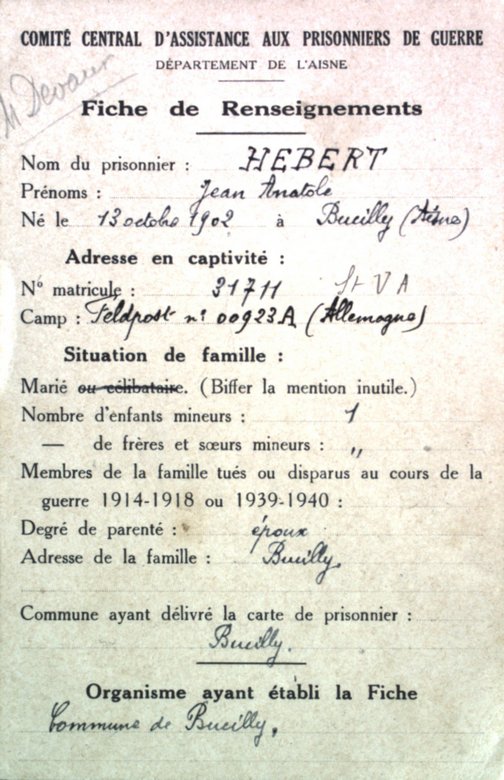 COMITÉ CENTRAL D'ASSISTANCE AUX PRISONNIERS DE GUERRE
DÉPARTEMENT DE L'AISNE
Fiche de Renseignements
Nom du prisonnier : HEBERT
Prénoms : Jean Anatole
Né le 13 octobre 1902 à Bucilly (Aisne)
Adresse en captivité :
N° matricule : 31711 St V A
Camp : Feldpost n° 00923A (Allemagne)
Situation de famille :
Marié ou célibataire. (Biffer la mention inutile.)
Nombre d'enfants mineurs : 1
— de frères et sœurs mineurs : „
Membres de la famille tués ou disparus au cours de la
guerre 1914-1918 ou 1939-1940 :
Degré de parenté : époux
Adresse de la famille : Bucilly
Commune ayant délivré la carte de prisonnier :
Bucilly.
Organisme ayant établi la Fiche
Commune de Bucilly.